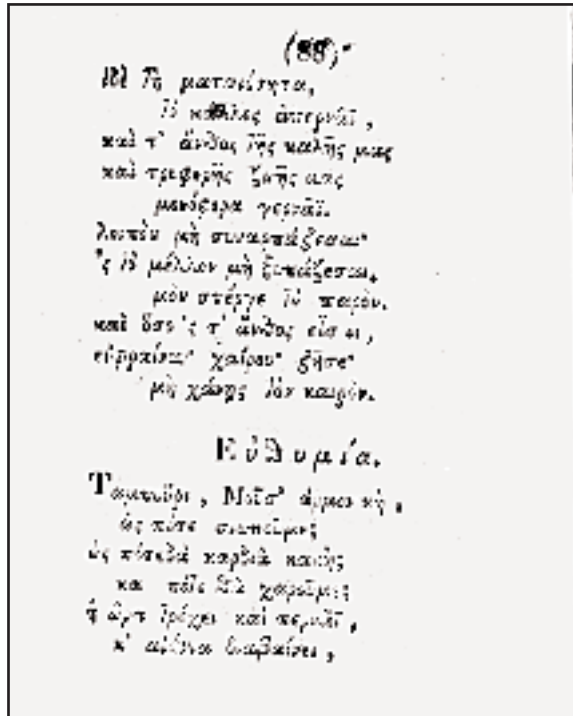 (88)
ματαιότητα,
Τὸ κάλλος ἀπερνᾶϊ,
καὶ τ' ἄνθος τῆς καλῆς μας
καὶ τρυφερῆς ζωῆς μας
γερνᾶϊ.
λοιπὸν μὴ συναρπάζεσαι·
'ς τὸ μέλλον μὴ ξιπάζεσαι.
μὸν στέργε τὸ παρόν.
καὶ ὅσο 'ς τ' ἄνθος εἶσαι,
εὐφραίνου· χαίρου· ζῆσε·
μὴ χάνῃς τὸν καιρόν.
Εὐθυμία.
Ταμποῦρι, Μοῦσ'
ὡς πότε σιωποῦμεν;
ὡς πότε καρδιὰ κακὴ;
και πότε θὰ χαροῦμεν;
ἡ ὥρα τρέχει καὶ περνάει,
κ' διαβαίνει,